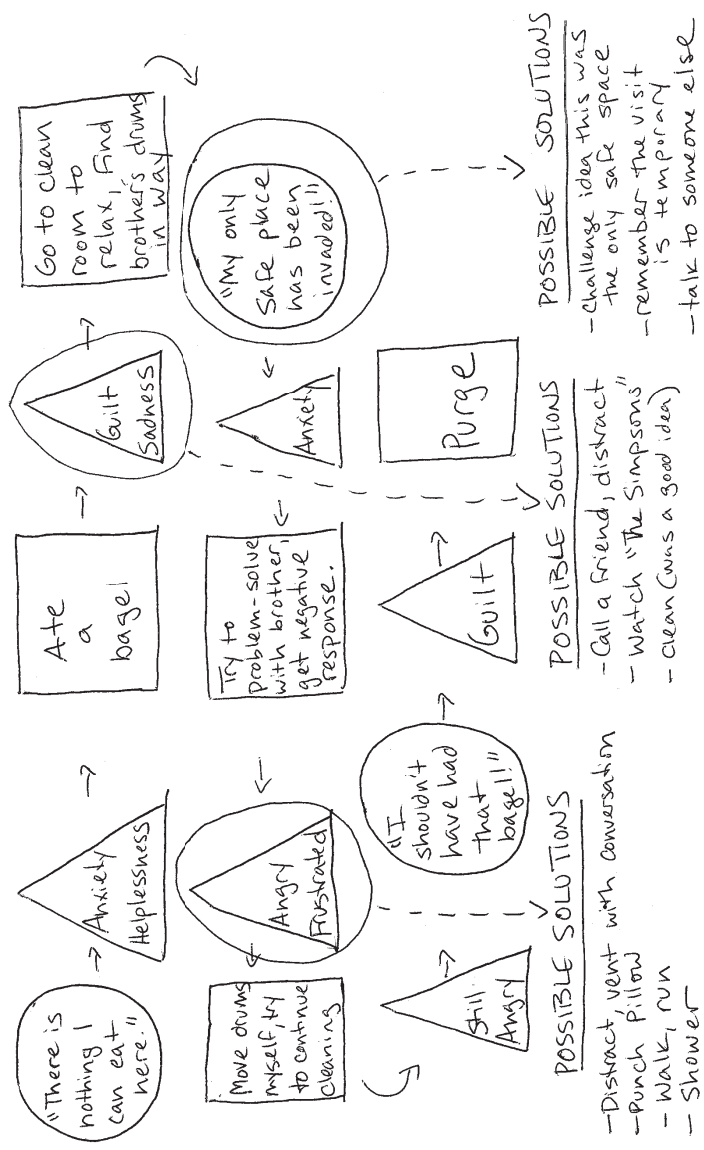 "There is
nothing I
can eat
here."
Anxiety
Helplessness
Ate
a
bagel
Guilt
Sadness
Go to clean
room to
relax, Find
brother's drums
in way
"My only
safe place
has been
invaded!"
Anxiety
Try to
Problem-solve
with brother,
get negative
response.
Angry
Frustrated
Move drums
myself, try
to continue
cleaning
Still
Angry
"I
shouldn't
have had
that
bagel!"
Guilt
Purge
POSSIBLE SOLUTIONS
- Distract, vent with conversation
- Punch pillow
- Walk, run
- Shower
POSSIBLE SOLUTIONS
- Call a friend, distract
- Watch "The Simpsons"
- Clean (was a good idea)
POSSIBLE SOLUTIONS
- Challenge idea this was
the only safe space
- remember the visit
is temporary
- talk to someone else